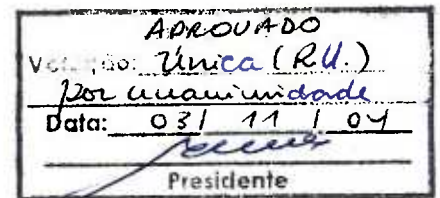 APROVADO
Votação: Única (R.U.)
por unanimidade
Data: 03/ 11 / 04
Presidente